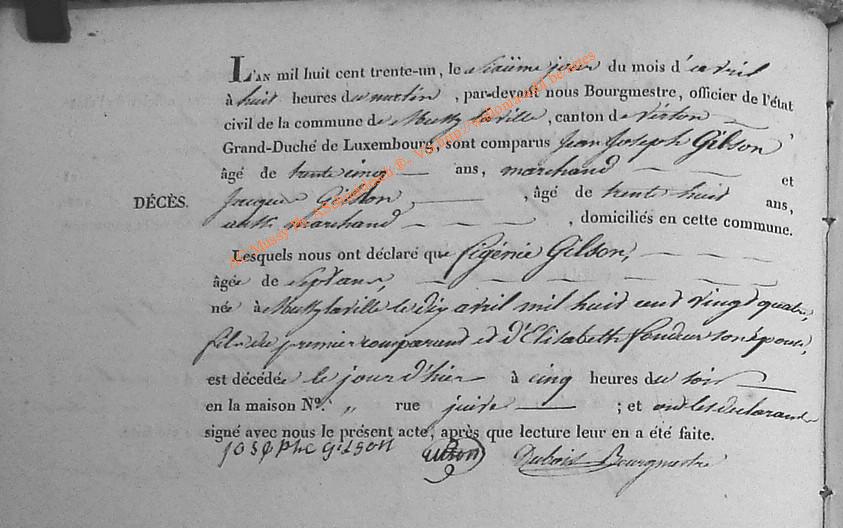 L'AN mil huit cent trente-un, le sixième jour du mois d'avril
à huit heures du matin, par-devant nous Bourgmestre, officier de l'état
civil de la commune de Mussy la ville, canton de Virton
Grand-Duché de Luxembourg, sont comparus Jean Joseph Gilson
âgé de trente cinq ans, marchand et
DÉCÈS. Jacques Gilson, âgé de trente huit ans,
aussi marchand, domiciliés en cette commune.
Lesquels nous ont déclaré que Gilson,
âgée de sept ans,
née à Mussy la ville le dix avril mil huit cent vingt quatre,
fille du premier comparant et d'Elisabeth son épouse,
est décédée le jour d'hier à cinq heures du soir
en la maison N°. „ rue ; et ont les déclarans
signé avec nous le présent acte, après que lecture leur en a été faite.
JOSEPhe GilSON Gilson Dubois Bourgmestre